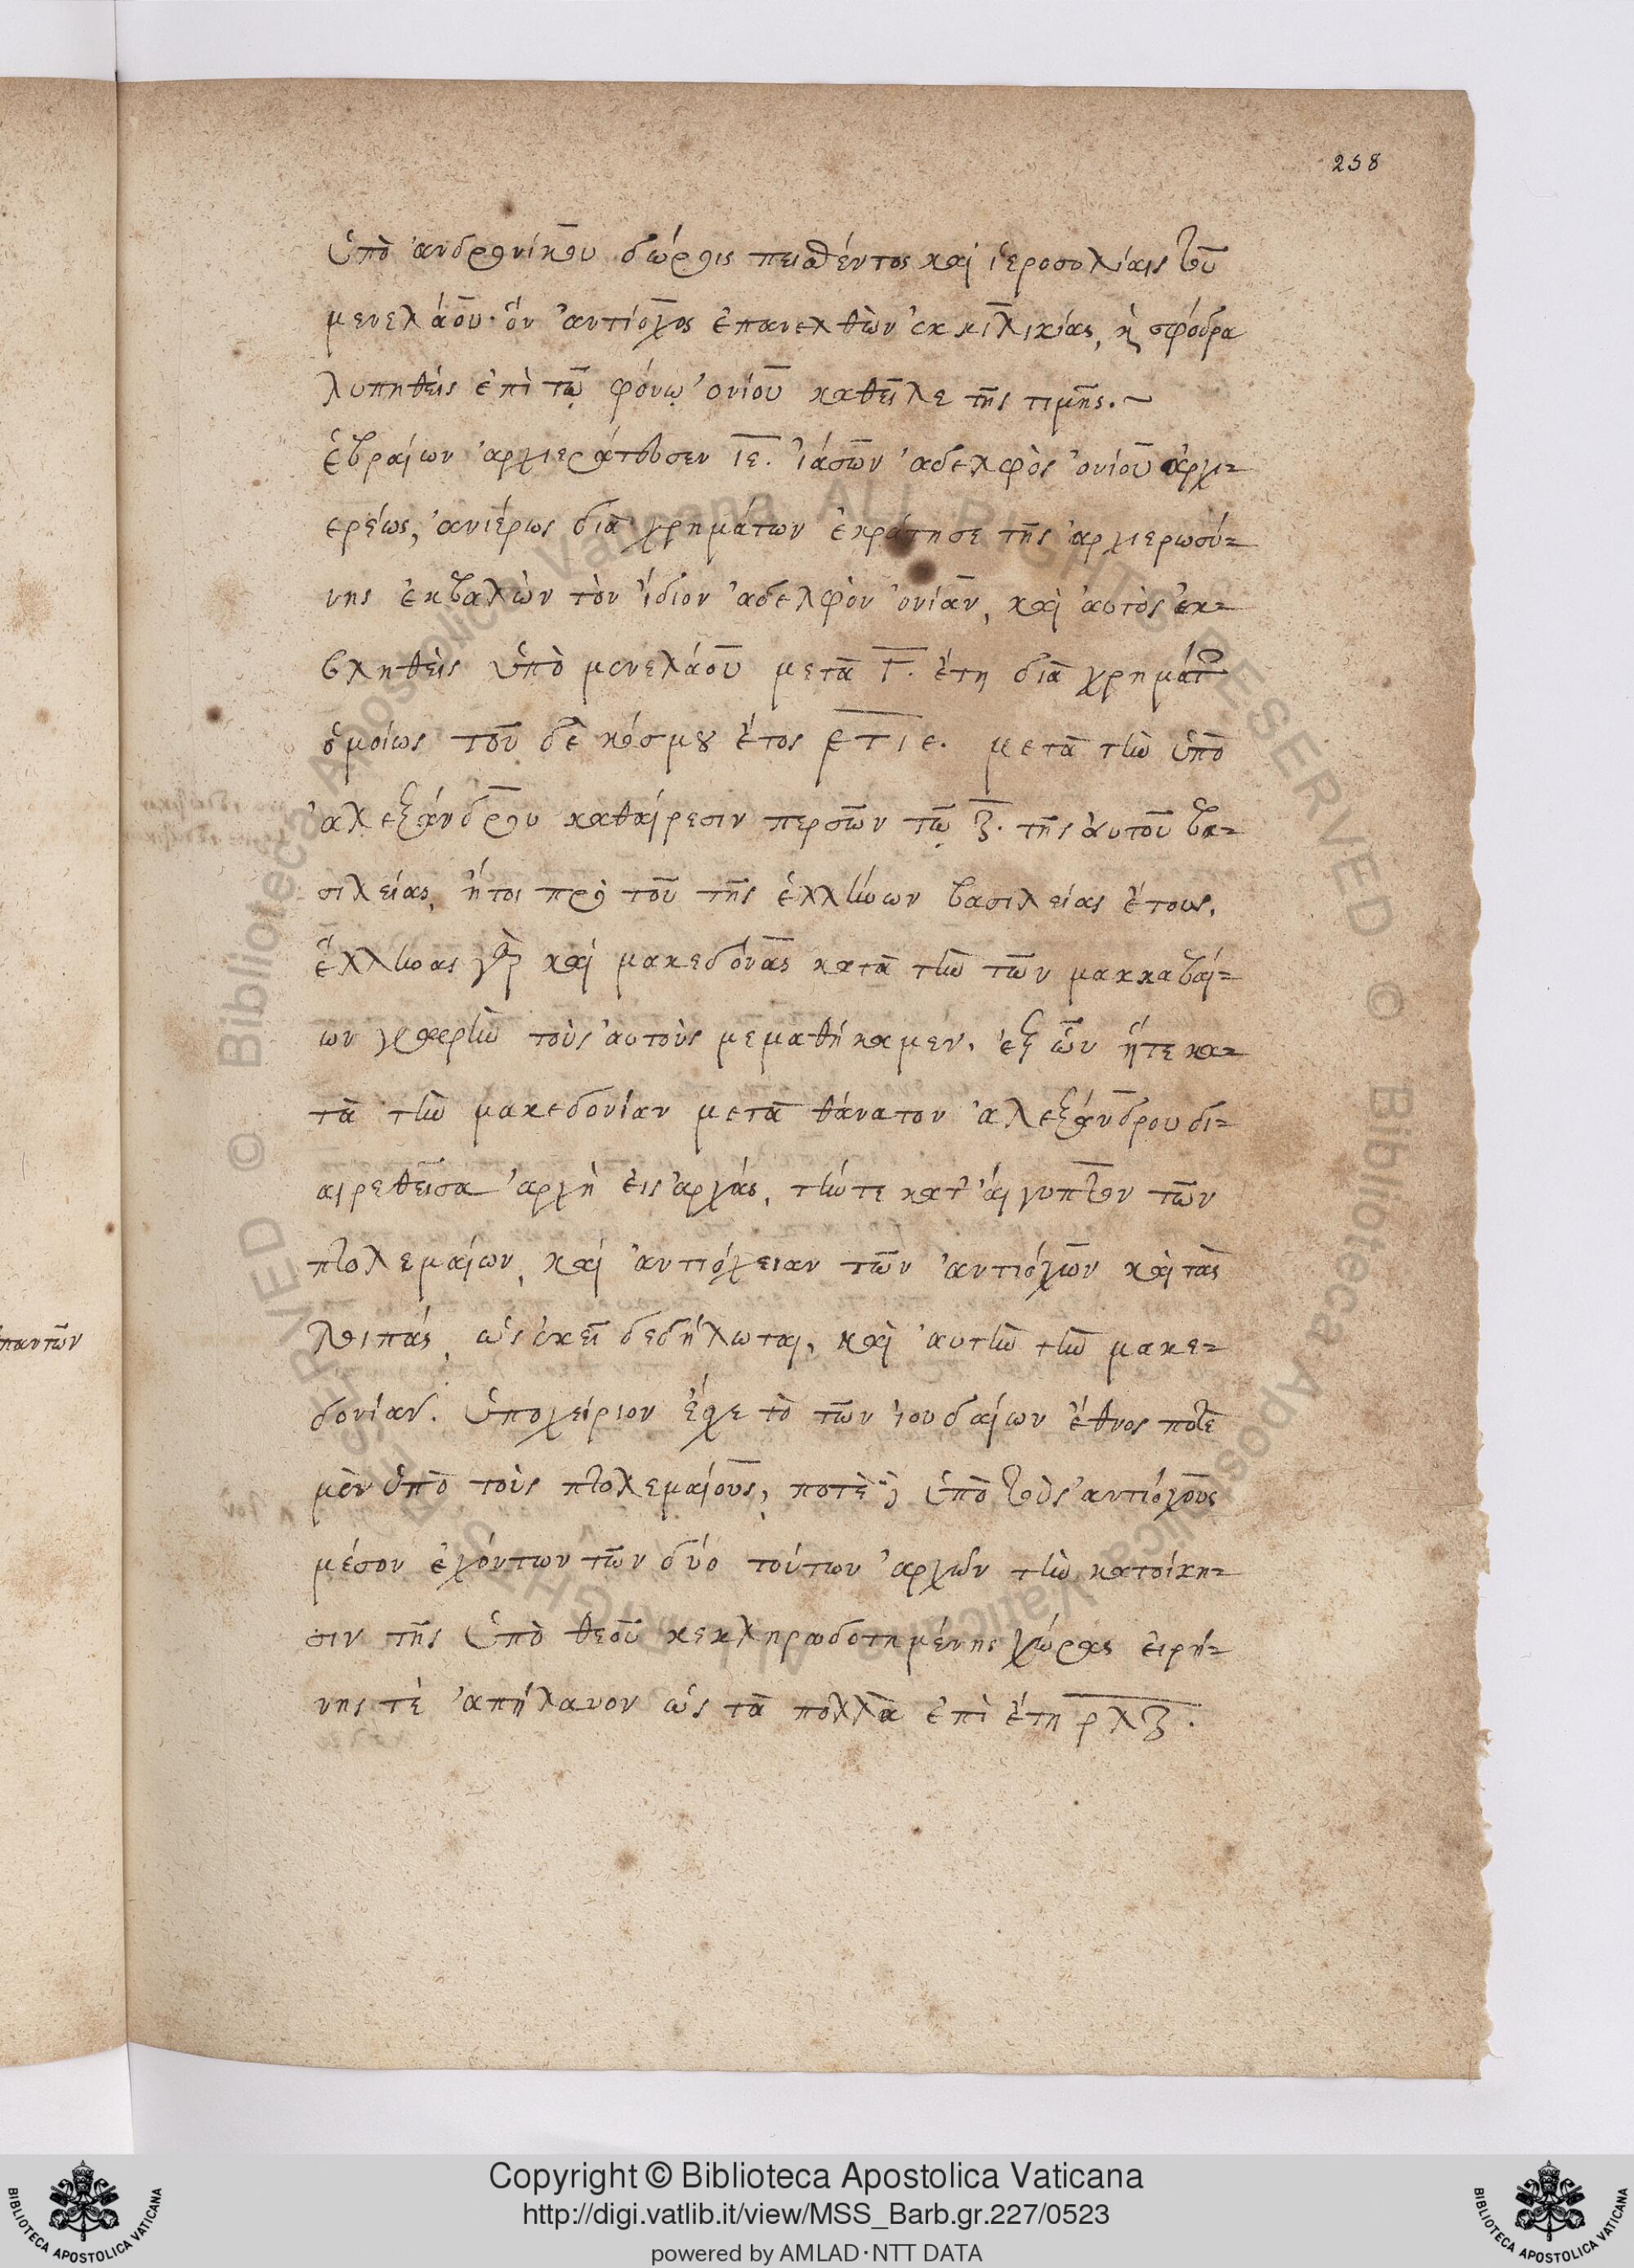 258
ὑπὸ ἀνδρονίκου δώροις πεισθέντος καὶ ἱεροσολίαις τοῦ
μενελάου· ὃν ἀντίοχος ἐπανελθὼν ἐκ κιλικίας, ἢ σφόδρα
λυπηθεὶς ἐπὶ τῷ φόνῳ ὀνίου καθεῖλε τῆς τιμῆς.~
ἑβραίων ἀρχιεράτευσεν ιε. ἰάσων ἀδελφὸς ὀνίου ἀρχι=
ερέως, ἀνιέρως διὰ χρημάτων ἐκράτησε τῆς ἀρχιερωσύ=
νης ἐκβαλὼν τὸν ἴδιον ἀδελφὸν ὀνίαν, καὶ αὐτὸς ἐκ=
βληθεὶς ὑπὸ μενελάου μετὰ Γ. ἔτη διὰ χρημάτων
ὁμοίως τοῦ δὲ κόσμου ἔτος ετιε. μετὰ τὴν ὑπὸ
ἀλεξάνδρου καθαίρεσιν περσῶν τῷ ζ. τῆς αὐτοῦ βα=
σιλείας, ἤτοι πρὸ τοῦ τῆς ἑλλήνων βασιλείας ἔτους.
ἕλληνας γὰρ καὶ μακεδόνας κατὰ τὴν τῶν μακκαβαί=
ων γραφὴν τοὺς αὐτοὺς μεμαθήκαμεν. ἐξ ὧν ἥτε κα=
τὰ τὴν μακεδονίαν μετὰ θάνατον ἀλεξάνδρου δι=
αιρεθεῖσα ἀρχὴ εἰς ἀρχάς, τήντε κατ' αἴγυπτον τῶν
πτολεμαίων, καὶ ἀντιόχειαν τῶν ἀντιόχων καὶ τὰς
λοιπάς, ὡς ἐκεῖ δεδήλωται, καὶ αὐτὴν τὴν μακε=
δονίαν. ὑποχείριον ἔχε τὸ τῶν ἰουδαίων ἔθνος ποτὲ
μὲν ὑπὸ τοὺς πτολεμαίους, ποτὲ δὲ ὑπὸ τοὺς ἀντιόχους
μέσον ἐχόντων τῶν δύο τούτων ἀρχῶν τὴν κατοίκη=
σιν τῆς ὑπὸ θεοῦ κεκληροδοτημένης χώρας εἰρή=
νης τὲ ἀπήλαυον ὡς τὰ πολλὰ ἐπὶ ἔτη ρλζ.
παντῶν
Copyright © Biblioteca Apostolica Vaticana
http://digi.vatlib.it/view/MSS_Barb.gr.227/0523
powered by AMLAD·NTT DATA
BIBLIOTECA APOSTOLICA VATICANA
BIBLIOTECA APOSTOLICA VATICANA
© Biblioteca Apostolica Vaticana ALL RIGHTS RESERVED © Biblioteca Apostolica Vaticana ALL RIGHTS RESERVED